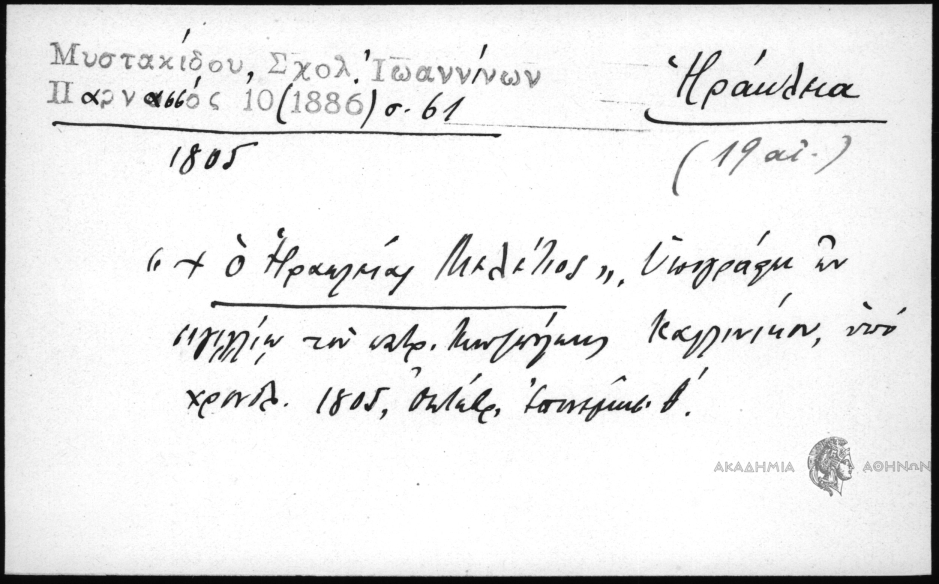 Μυστακίδου, Σχολ. Ἰωαννίνων
Παρνασσός 10 (1886) σ. 61
Ἡράκλεια
1805
(19 αἰ.)
"+ ὁ Ἡρακλείας Μελέτιος", ὑπογράφει ἐν
σιγιλλίῳ τοῦ πατρ. Κων)πόλεως Καλλινίκου, ὑπό
χρονολ. 1805, ὀκτωβρ. ἐπινεμήσ. θ'.
ΑΚΑΔΗΜΙΑ ΑΘΗΝΩΝ